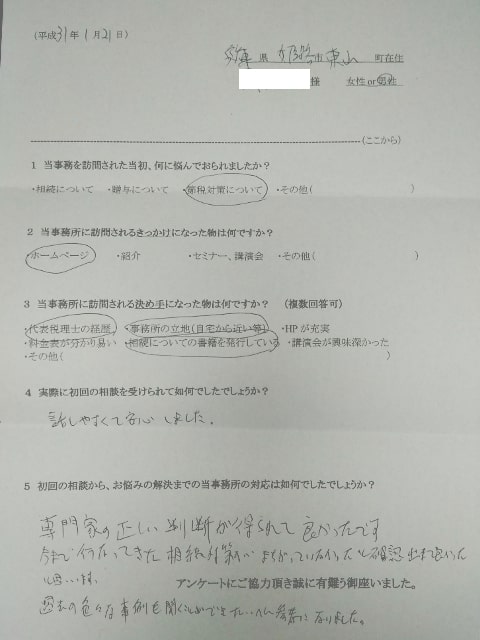 (平成31年1月21日)
兵庫県 姫路市 東山 町在住
様 女性or男性
(ここから)
1 当事務を訪問された当初、何に悩んでおられましたか?
・相続について ・贈与について ・節税対策について ・その他( )
2 当事務所に訪問されるきっかけになった物は何ですか?
・ホームページ ・紹介 ・セミナー、講演会 ・その他( )
3 当事務所に訪問される決め手になった物は何ですか? (複数回答可)
・代表税理士の経歴 ・事務所の立地(自宅から近い等) ・HPが充実
・料金表が分かり易い ・相続についての書籍を発行している ・講演会が興味深かった
・その他( )
4 実際に初回の相談を受けられて如何でしたでしょうか?
話しやすくて安心しました。
5 初回の相談から、お悩みの解決までの当事務所の対応は如何でしたでしょうか?
専門家の正しい判断が得られて良かったです
今まで行なってきた相続対策が まちがっていなかったと確認出来て良かった
と思います。
アンケートにご協力頂き誠に有難う御座いました。
過去の色々な事例も聞くことができ大へん参考になりました。